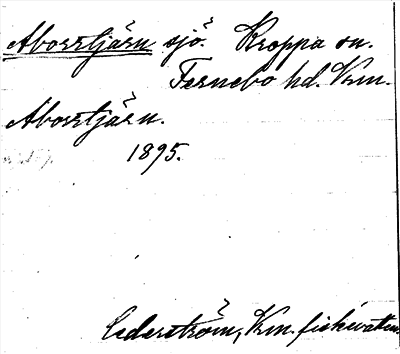 Aborrtjärn sjö. Kroppa sn.
Fernebo hd. Vrm.
Aborrtjärn.
1895.
Cederström, Vrm. fiskevatten